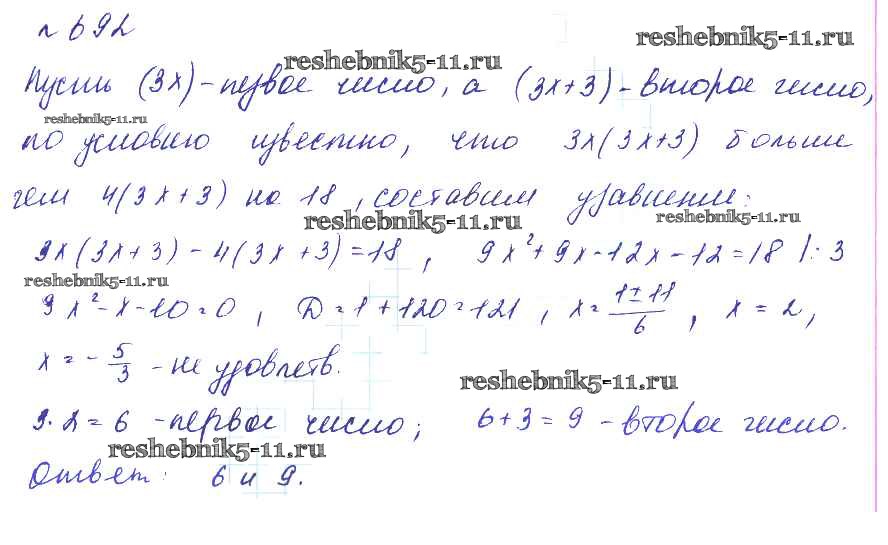 № 692
reshebnik5-11.ru reshebnik5-11.ru
Пусть (3x) - первое число, а (3x+3) - второе число,
reshebnik5-11.ru
по условию известно, что 3x(3x+3) больше
чем 4(3x+3) на 18, составим уравнение:
reshebnik5-11.ru reshebnik5-11.ru
3x(3x+3) - 4(3x+3) = 18, 9x² + 9x - 12x - 12 = 18 |: 3
reshebnik5-11.ru
3x² - x - 10 = 0, D = 1 + 120 = 121, x = (1 ± 11)/6, x = 2,
x = -5/3 - не удовлетв.
reshebnik5-11.ru
3·2 = 6 - первое число; 6 + 3 = 9 - второе число.
reshebnik5-11.ru
Ответ: 6 и 9.